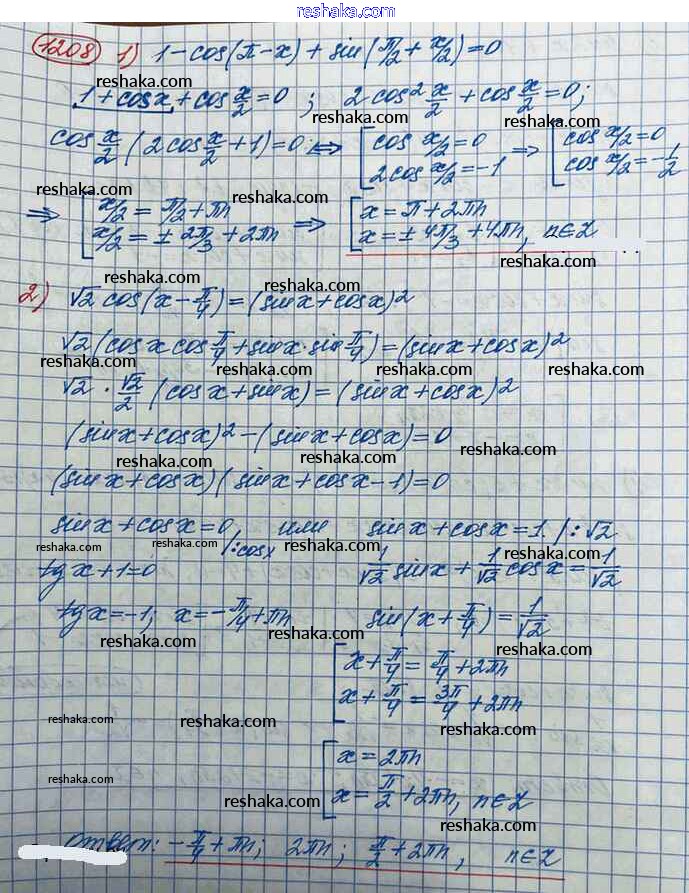 www.reshaka.ru
1208 1) 1-cos(π-x)+sin(π/2+x/2)=0
reshaka.com
1+cosx+cos x/2=0 ; 2cos² x/2+cos x/2=0;
reshaka.com reshaka.com
cos x/2 (2cos x/2+1)=0 <=> [cos x/2=0 => [cos x/2=0
2cos x/2=-1 cos x/2=-1/2
reshaka.com reshaka.com reshaka.com
=> [x/2=π/2+πn => [x=π+2πn
x/2=±2π/3+2πn x=±4π/3+4πn, n∈Z
reshaka.com reshaka.com
reshaka.com reshaka.com
2) √2 cos(x-π/4)=(sinx+cosx)²
reshaka.com
√2(cosx cos π/4+sinx·sin π/4)=(sinx+cosx)²
reshaka.com reshaka.com reshaka.com
√2·√2/2 (cosx+sinx)=(sinx+cosx)²
(sinx+cosx)²-(sinx+cosx)=0
reshaka.com reshaka.com
(sinx+cosx)(sinx+cosx-1)=0
reshaka.com
sinx+cosx=0 |:cosx или sinx+cosx=1. |:√2
reshaka.com reshaka.com reshaka.com
tgx+1=0 1/√2 sinx+1/√2 cosx=1/√2
tgx=-1; x=-π/4+πn sin(x+π/4)=1/√2
reshaka.com reshaka.com reshaka.com
[x+π/4=π/4+2πn
x+π/4=3π/4+2πn
reshaka.com reshaka.com reshaka.com
[x=2πn
x=π/2+2πn, n∈Z
reshaka.com reshaka.com reshaka.com
Ответ: -π/4+πn; 2πn; π/2+2πn, n∈Z
reshaka.com reshaka.com